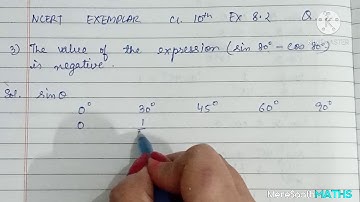 NCERT EXEMPLAR Cl. 10th Ex 8.2 Q
3) The value of the expression (sin 80° - cos 80°)
is negative.
Sol. sin θ
0° 30° 45° 60° 90°
0 1
MATHS